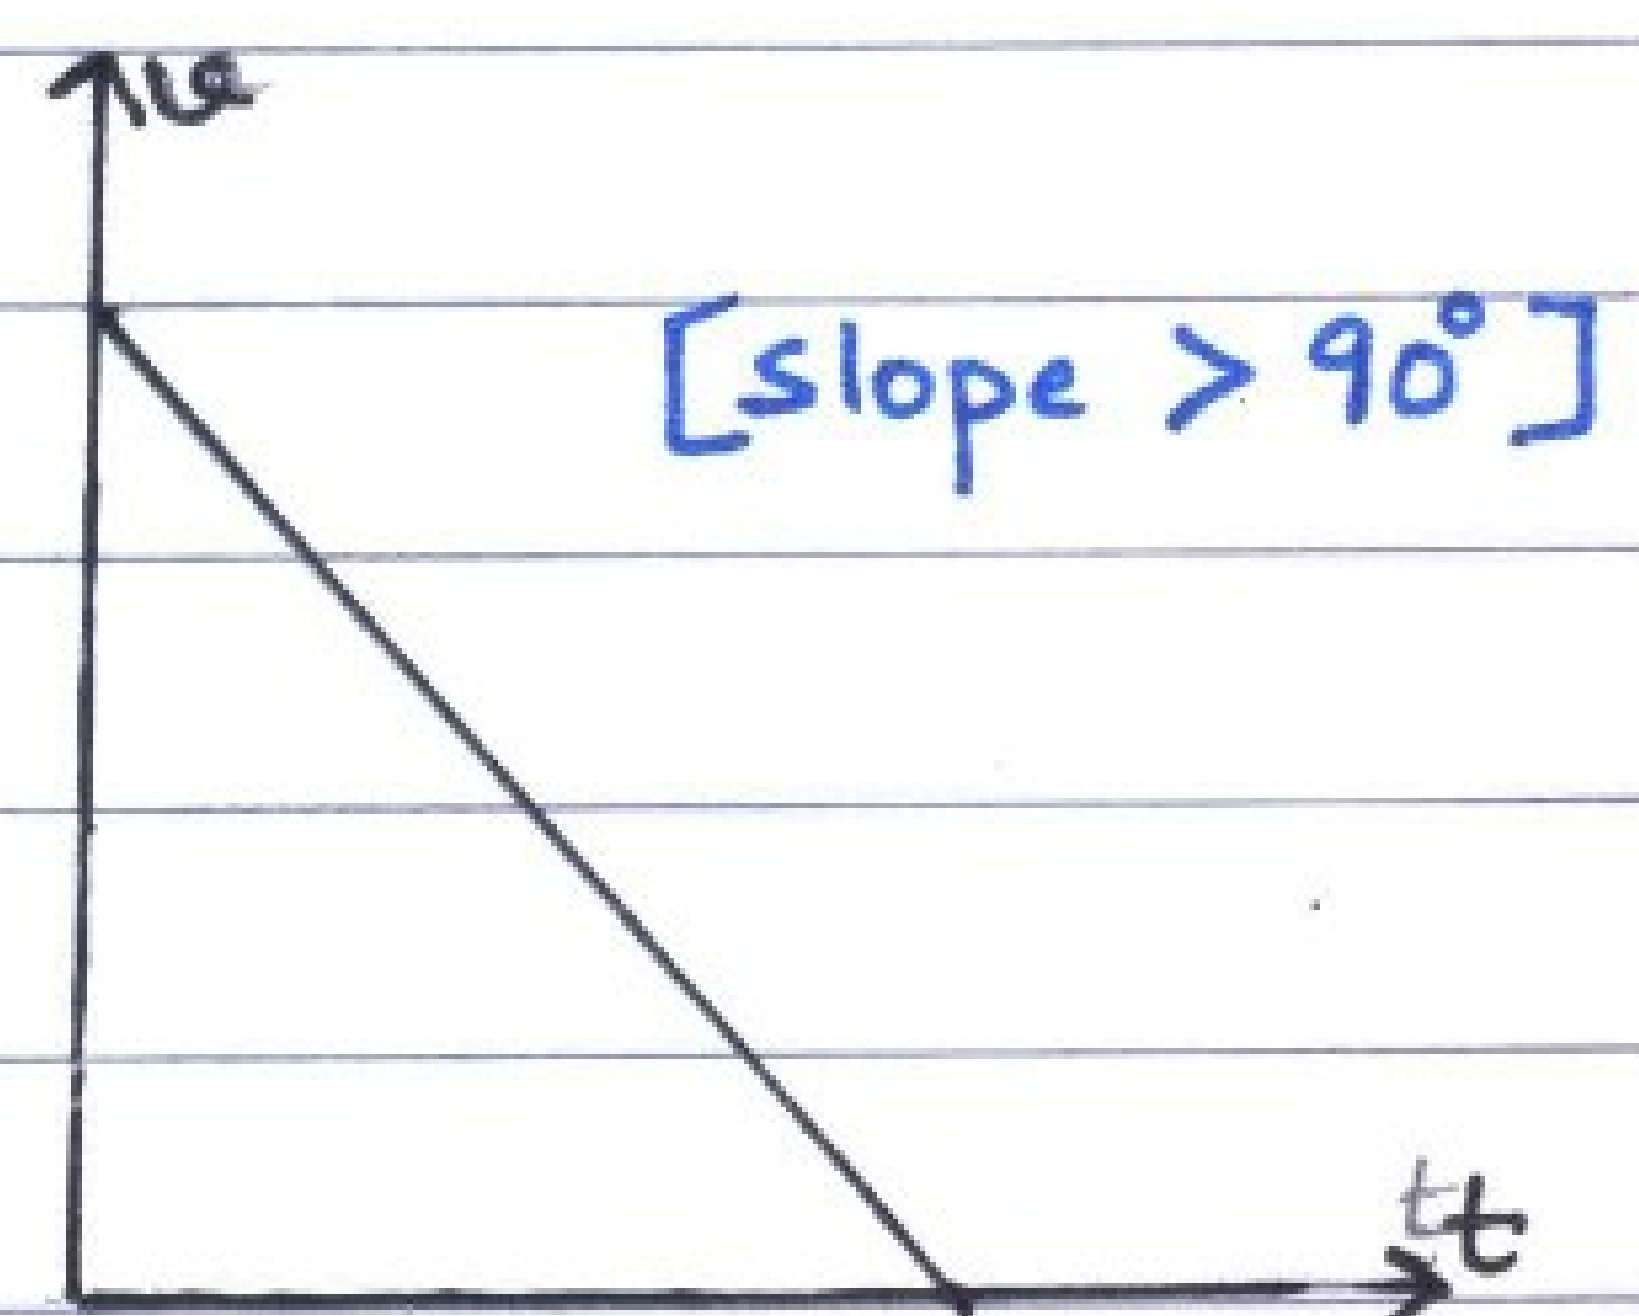 v
[slope > 90°]
t t